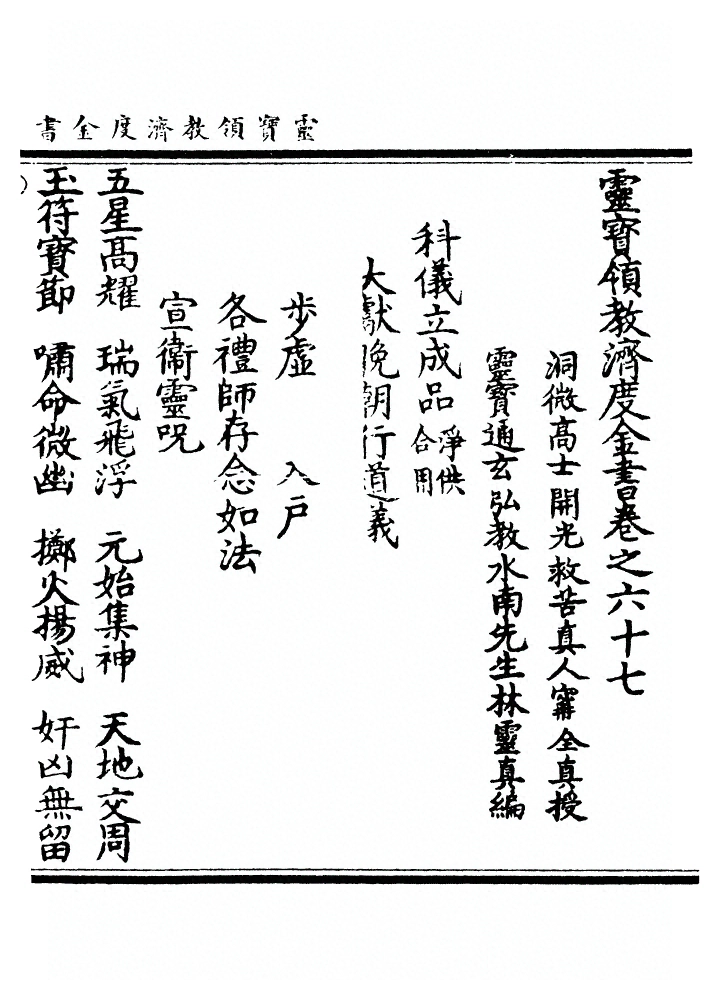 靈寶領教濟度金書
靈寶領教濟度金書卷之六十七
洞微高士開光救苦真人甯全真授
靈寶通玄弘教水南先生林靈真編
科儀立成品 淨供合用
大獻晚朝行道義
步虛 入戶
各禮師存念如法
宣衛靈呪
五星高耀 瑞氣飛浮 元始集神 天地交周
玉符寶節 嘯命微幽 擲火揚威 奸凶無留